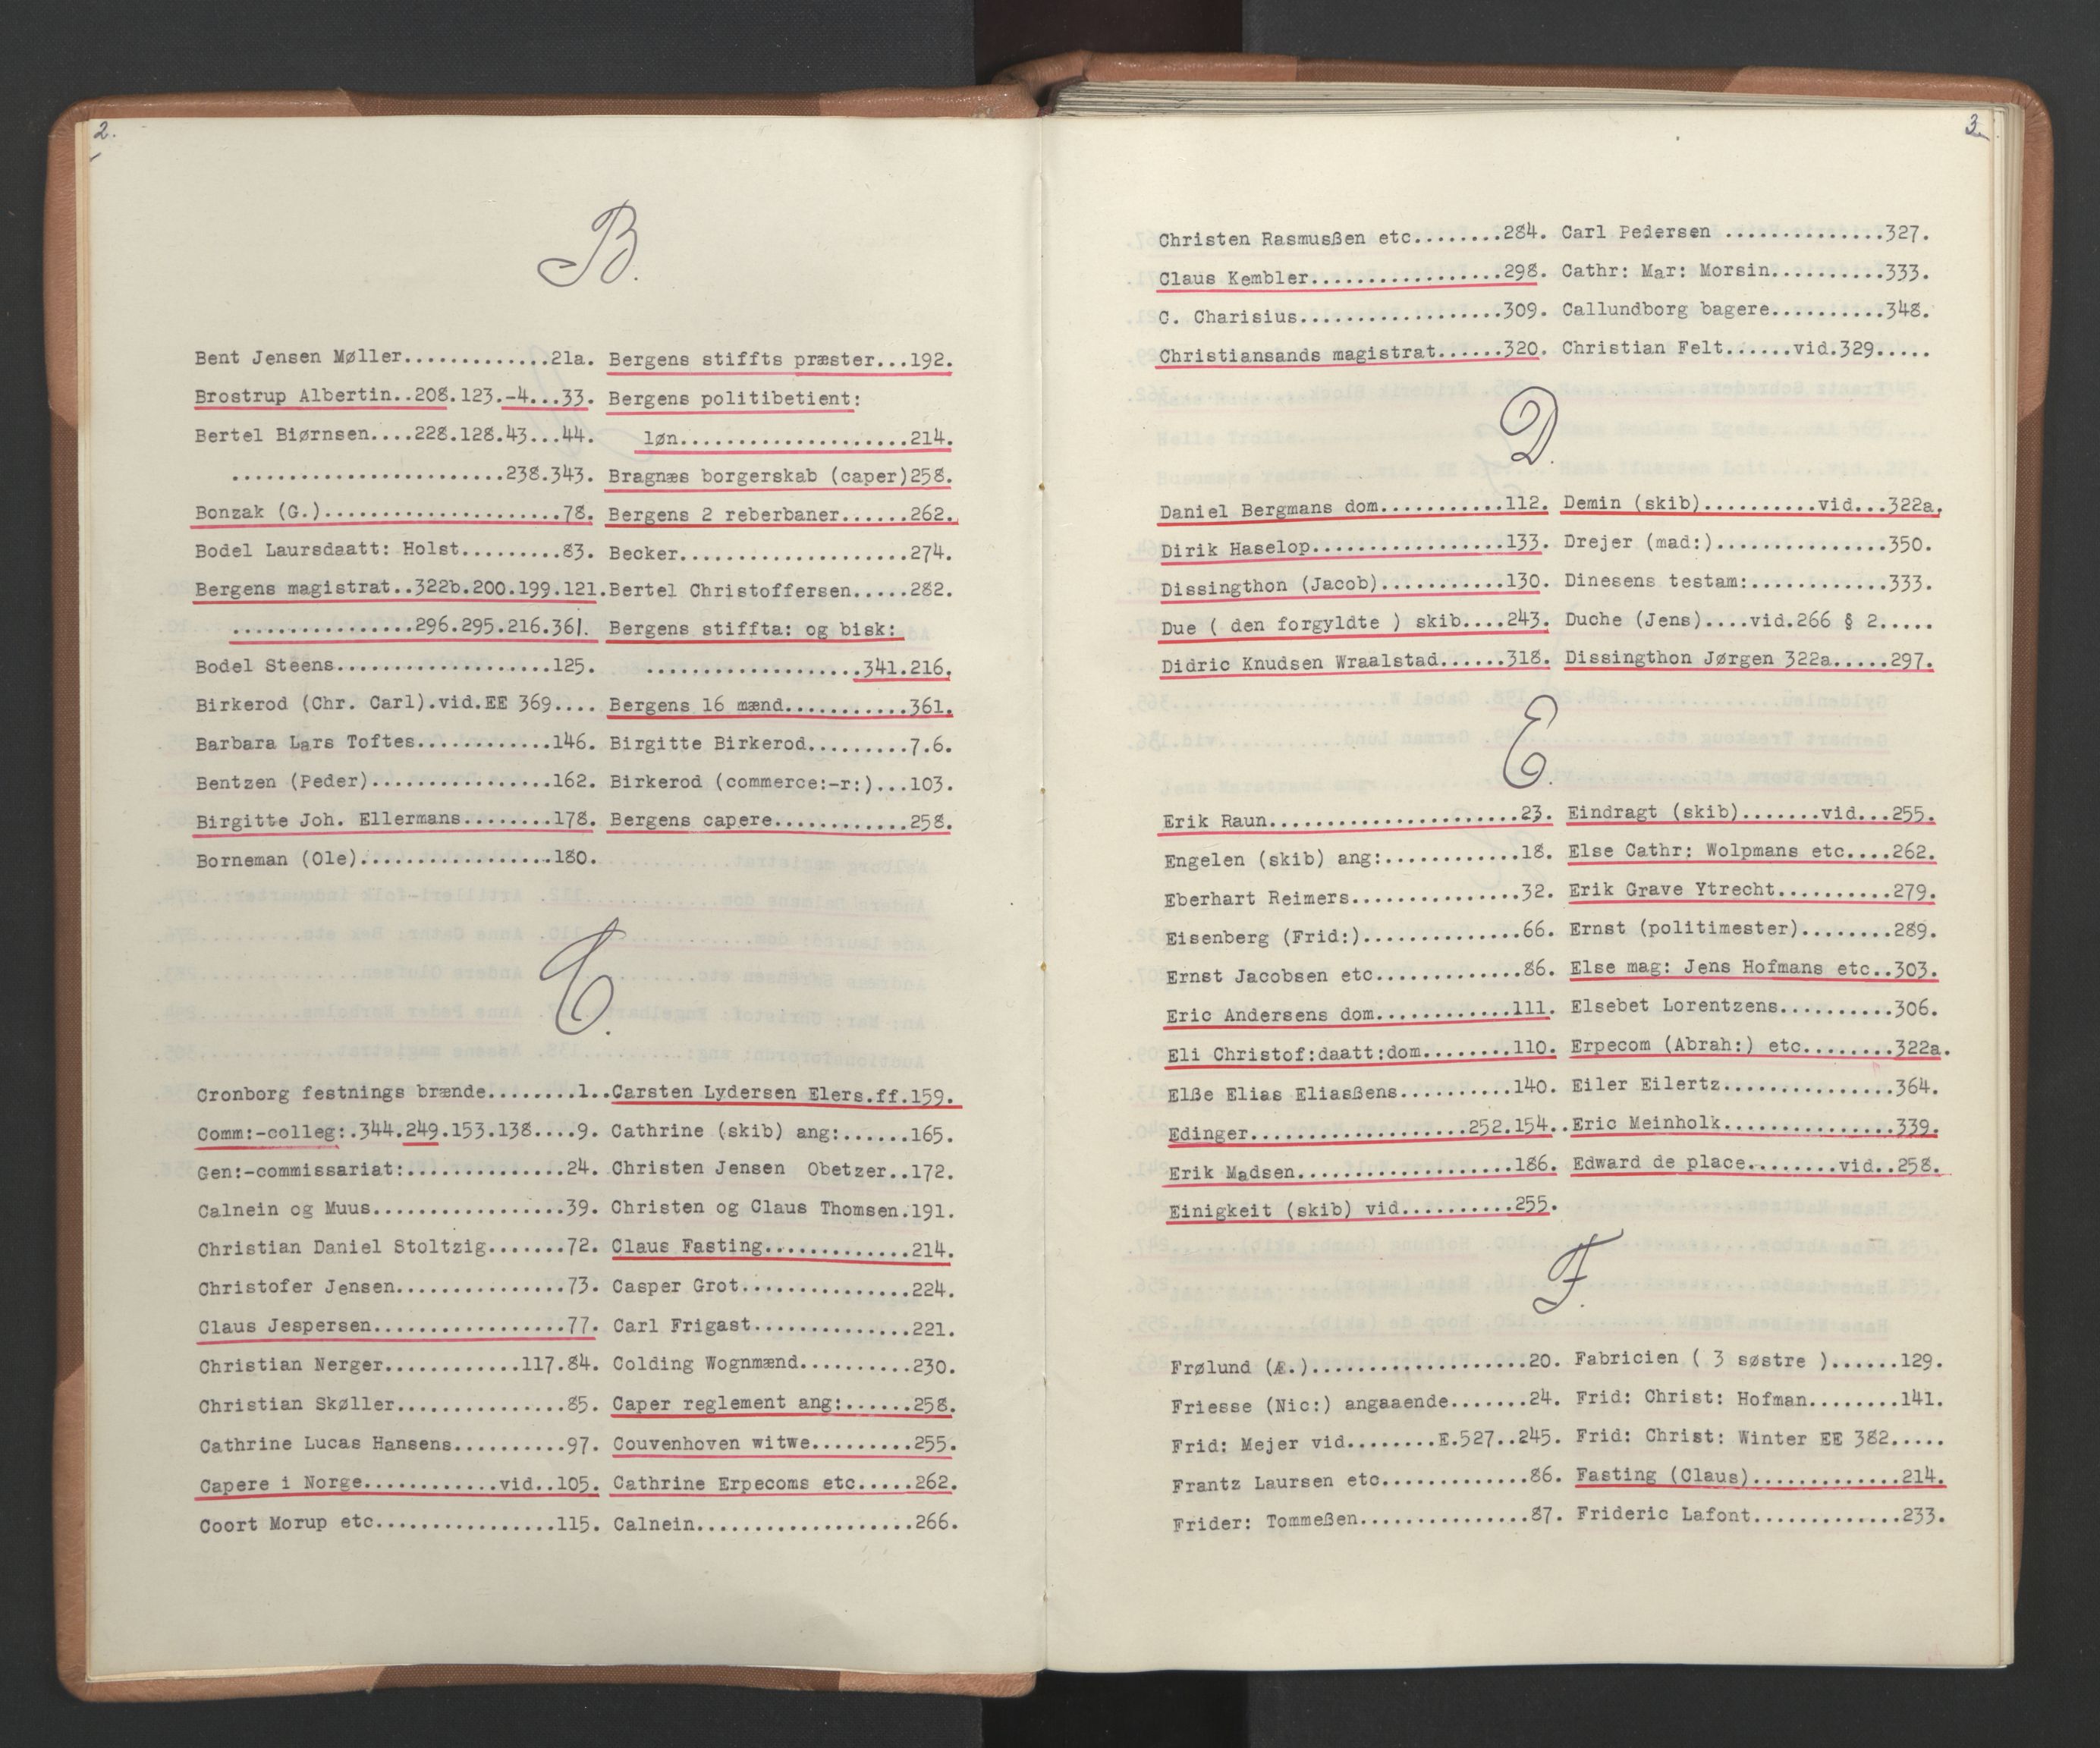 2.
B.
Bent Jensen Møller.............21a.
Brostrup Albertin..208.123.-4...33.
Bertel Biørnsen....228.128.43...44.
.........................238.343.
Bonzak (G.)......................78.
Bodel Laursdaatt: Holst.........83.
Bergens magistrat..322b.200.199.121.
.................296.295.216.361.
Bodel Steens....................125.
Birkerod (Chr. Carl).vid.EE 369....
Barbara Lars Toftes............146.
Bentzen (Peder)................162.
Birgitte Joh. Ellermans........178.
Borneman (Ole)..................180.
Bergens stiffts præster...192.
Bergens politibetient:
løn.....................214.
Bragnæs borgerskab (caper)258.
Bergens 2 reberbaner......262.
Becker.....................274.
Bertel Christoffersen.....282.
Bergens stiffta: og bisk:
....................341.216.
Bergens 16 mænd...........361.
Birgitte Birkerod.........7.6.
Birkerod (commerce:-r:)...103.
Bergens capere............258.
C.
Cronborg festnings brænde........1..
Comm:-colleg:.344.249.153.138....9.
Gen:-commissariat:..............24.
Calnein og Muus.................39.
Christian Daniel Stoltzig.......72.
Christofer Jensen...............73.
Claus Jespersen.................77.
Christian Nerger............117.84.
Christian Skøller...............85.
Cathrine Lucas Hansens..........97.
Capere i Norge............vid..105.
Coort Morup etc................115.
Carsten Lydersen Elers.ff.159.
Cathrine (skib) ang:......165.
Christen Jensen Obetzer..172.
Christen og Claus Thomsen.191.
Claus Fasting.............214.
Casper Grot...............224.
Carl Frigast..............221.
Colding Wognmænd..........230.
Caper reglement ang:......258.
Couvenhoven witwe.........255.
Cathrine Erpecoms etc.....262.
Calnein....................266.
3.
Christen Rasmusßen etc........284.
Claus Kembler..................298.
C. Charisius...................309.
Christiansands magistrat......320.
Carl Pedersen ...............327.
Cathr: Mar: Morsin..........333.
Callundborg bagere..........348.
Christian Felt......vid.329.....
D.
Daniel Bergmans dom...........112.
Dirik Haselop..................133.
Dissingthon (Jacob)............130.
Due ( den forgyldte ) skib....243.
Didric Knudsen Wraalstad......318.
Demin (skib)..........vid...322a.
Drejer (mad:)................350.
Dinesens testam:.............333.
Duche (Jens)....vid.266 § 2.....
Dissingthon Jørgen 322a.....297.
E.
Erik Raun.......................23.
Engelen (skib) ang:.............18.
Eberhart Reimers................32.
Eisenberg (Frid:)...............66.
Ernst Jacobsen etc..............86.
Eric Andersens dom............111.
Eli Christof:daatt:dom........110.
Elße Elias Eliasßens..........140.
Edinger.....................252.154..
Erik Madsen....................186.
Einigkeit (skib) vid..........255.
Eindragt (skib).......vid...255.
Else Cathr: Wolpmans etc....262.
Erik Grave Ytrecht..........279.
Ernst (politimester)........289.
Else mag: Jens Hofmans etc..303.
Elsebet Lorentzens..........306.
Erpecom (Abrah:) etc........322a.
Eiler Eilertz................364.
Eric Meinholk................339.
Edward de place........vid..258.
F.
Frølund (Æ.).....................20.
Friesse (Nic:) angaaende.......24.
Frid: Mejer vid........E.527..245.
Frantz Laursen etc.............86.
Frider: Tommeßen................87.
Fabricien ( 3 søstre )......129.
Frid: Christ: Hofman........141.
Frid: Christ: Winter EE 382.....
Fasting (Claus).............214.
Frideric Lafont.............233.